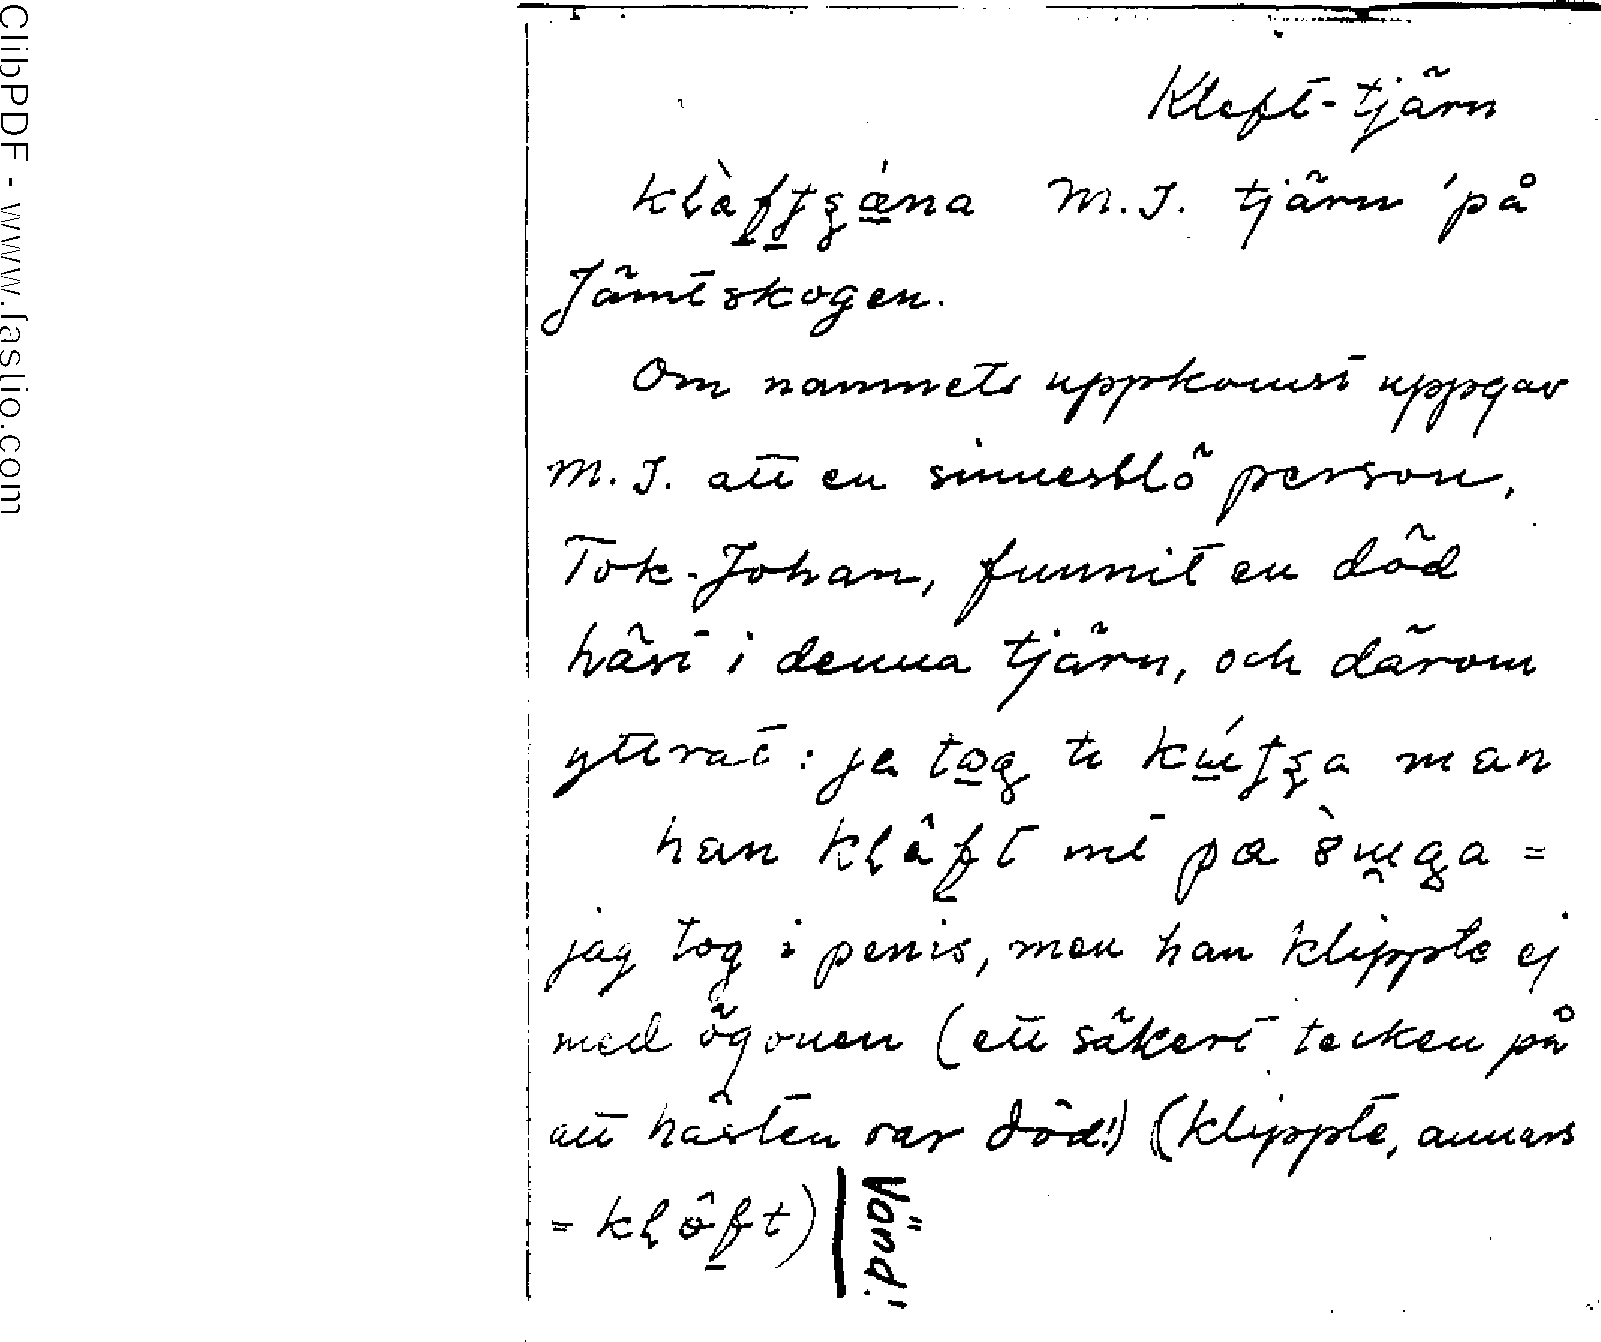 ClibPDF - www.fastio.com
Kleft-tjärn
M.J. tjärn på
Jämtskogen.
Om namnets uppkomst uppgav
M.J. att en sinnesslö person,
Tok-Johan, funnit en död
häst i denna tjärn, och därom
yttrat: ja tog te man
han mt pa
jag tog i penis, men han klippte ej
med ögonen (ett säkert tecken på
att hästen var död!) (klippte, annars
= klôft)
Vänd!